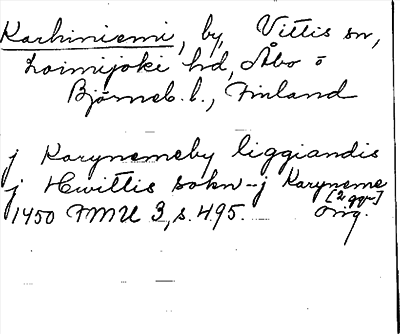 Karhiniemi, by, Vittis sn,
Loimijoki hd, Åbo o
Björneb. l., Finland
j Karynemeby liggiandis
j Hwittis sokn--j Karyneme
[2 ggr]
1450 FMU 3, s. 495. Orig.